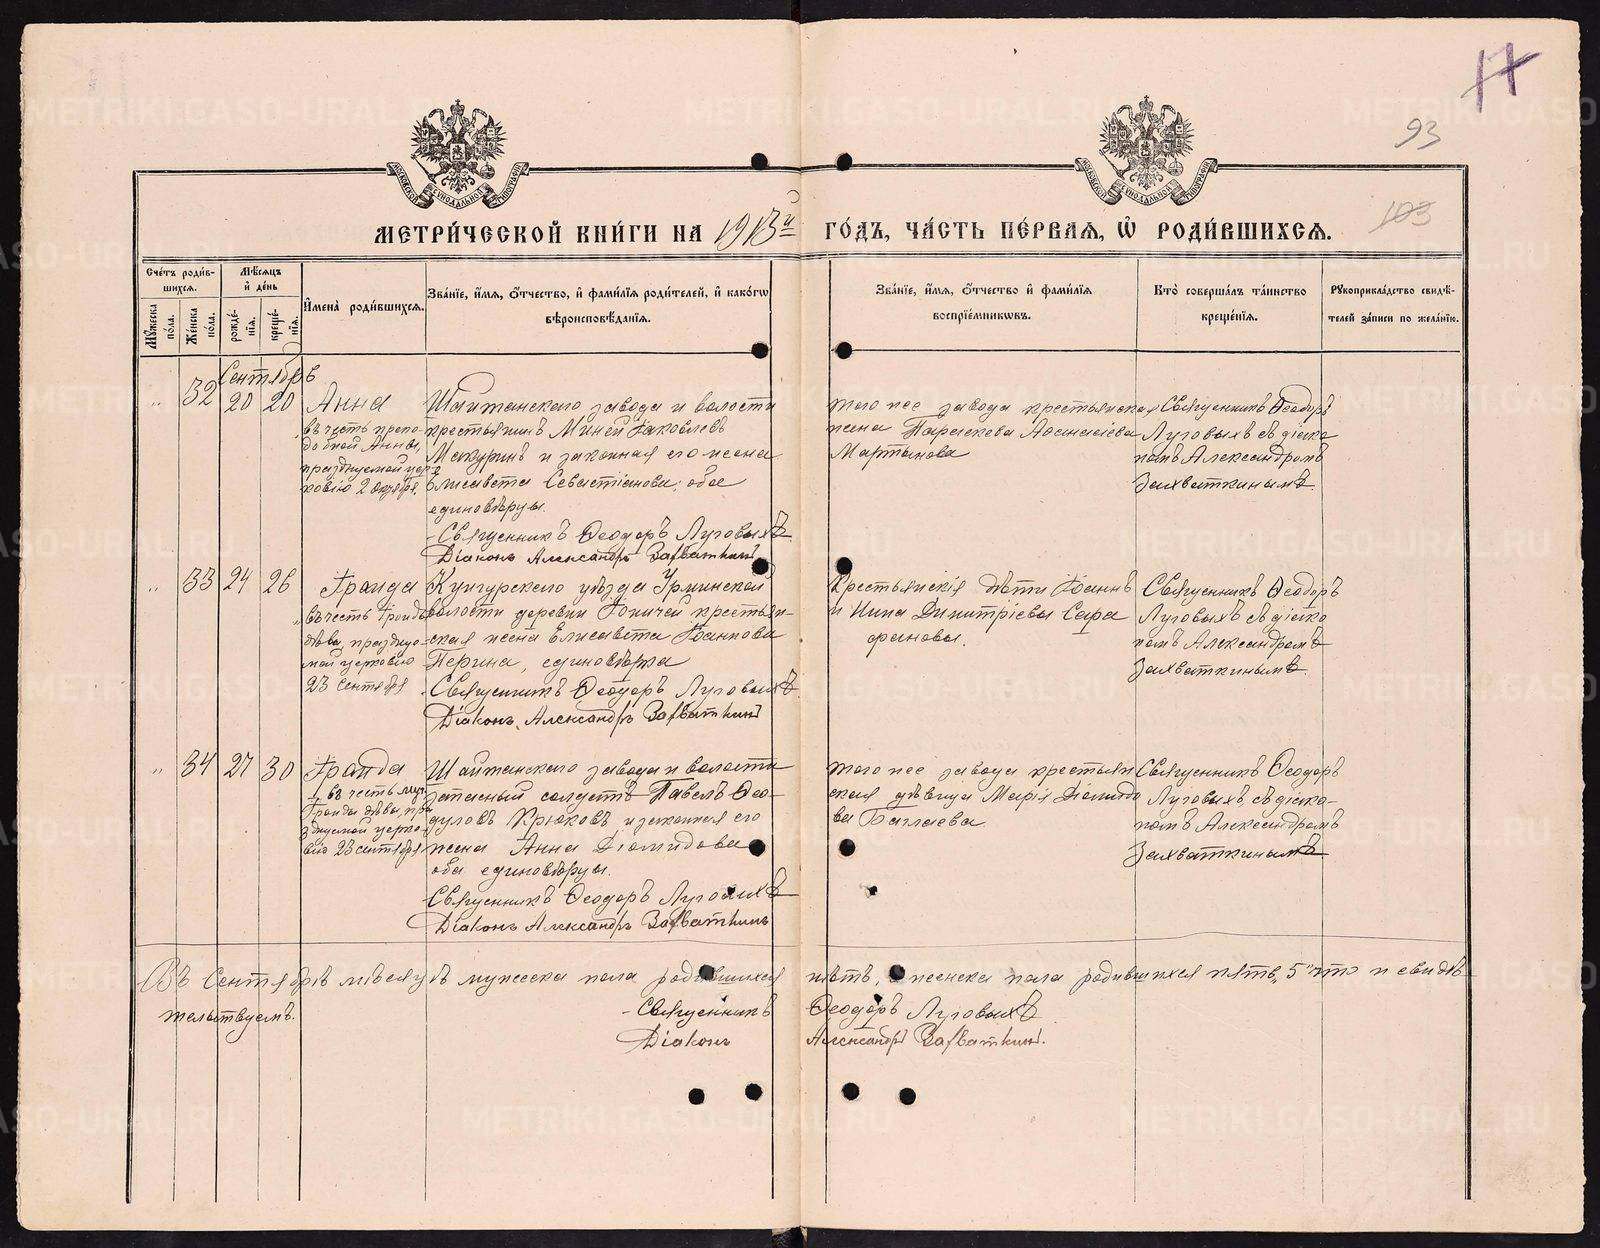 17
93
103
МЕТРИ́ЧЕСКОЙ КНИ́ГИ НА 1913й ГО́ДЪ, ЧА́СТЬ ПЕ́РВАѦ, Ѽ РОДИ́ВШИХСѦ.
Сче́тъ роди́в-
шихсѧ.
Мꙋ́жеска по́ла.
Же́нска по́ла.
Мѣ́сѧцъ
и҆ де́нь
рожде́-нїѧ.
креще́-нїѧ.
И҆мена̀ роди́вшихсѧ.
Зва́нїе, и҆́мѧ, ѻ҆́тчество, и҆ фами́лїѧ роди́телей, и҆ како́гѡ
вѣроисповѣ́данїѧ.
Зва́нїе, и҆́мѧ, ѻ҆́тчество и҆ фами́лїѧ
воспрїе́мникѡвъ.
Кто̀ соверша́лъ та́инство
креще́нїѧ.
Рꙋкоприкла́дство свидѣ́-
телей за́писи по жела́нїю.
Сентябрь
" 32 20 20
Анна
въ честь препо-
добной Анны,
празднуемой цер-
ковію 2 Октября.
Шайтанскаго завода и волости
крестьянинъ Миней Іаковлевъ
и законная его жена
Елисавета Севастіанова, обое
единовѣрцы.
Священникъ Ѳеодоръ Луговыхъ
Діаконъ Александръ Захваткинъ
того же завода крестьянская
жена Параскева Аѳанасіева
Мартынова
Священникъ Ѳеодоръ
Луговыхъ съ діако
номъ Александромъ
Захваткинымъ.
" 33 24 26
Ираида
въ честь Ираиды
дѣвы, праздну-
мой церковію
23 Сентября
Кунгурскаго уѣзда Урминской
волости деревни крестьян-
ская жена Елисавета Іоаннова
Перина, единовѣрка
Священникъ Ѳеодоръ Луговыхъ
Діаконъ Александръ Захваткинъ
Крестьянскія дѣти Іоаннъ
и Нина Димитріевы Сафа
роновы.
Священникъ Ѳеодоръ
Луговыхъ съ діако
номъ Александромъ
Захваткинымъ.
" 34 27 30
Ираида
въ честь муч.
Ираиды дѣвы, пра
зднуемой церко-
вію 23 сентября
Шайтанскаго завода и волости
запасный солдатъ Павелъ Ѳео-
дуловъ Крюковъ и законная его
жена Анна Діомидова
оба единовѣрцы.
Священникъ Ѳеодоръ Луговыхъ
Діаконъ Александръ Захваткинъ
того же завода крестьян
ская дѣвица Марія Діомидо
ва Баглаева.
Священникъ Ѳеодоръ
Луговыхъ, съ діако-
номъ Александромъ
Захваткинымъ
Въ Сентябрѣ мѣсяцѣ мужеска пола родившихся нѣтъ, а женска пола родившихся пять "5" что и свидѣ
тельствуемъ.
Священникъ Ѳеодоръ Луговыхъ
Діаконъ Александръ Захваткинъ.
METRIKI.GASO-URAL.RU